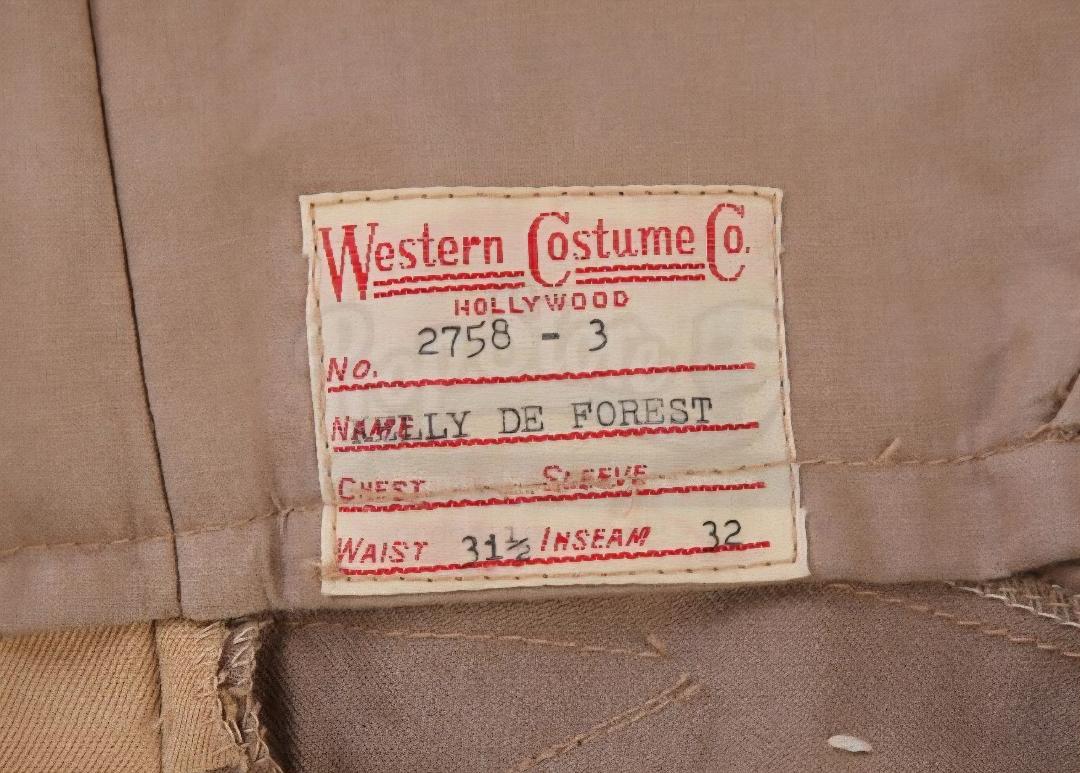 Western Costume Co.
HOLLYWOOD
No. 2758 - 3
NAME KELLY DE FOREST
CHEST SLEEVE
WAIST 31½ INSEAM 32